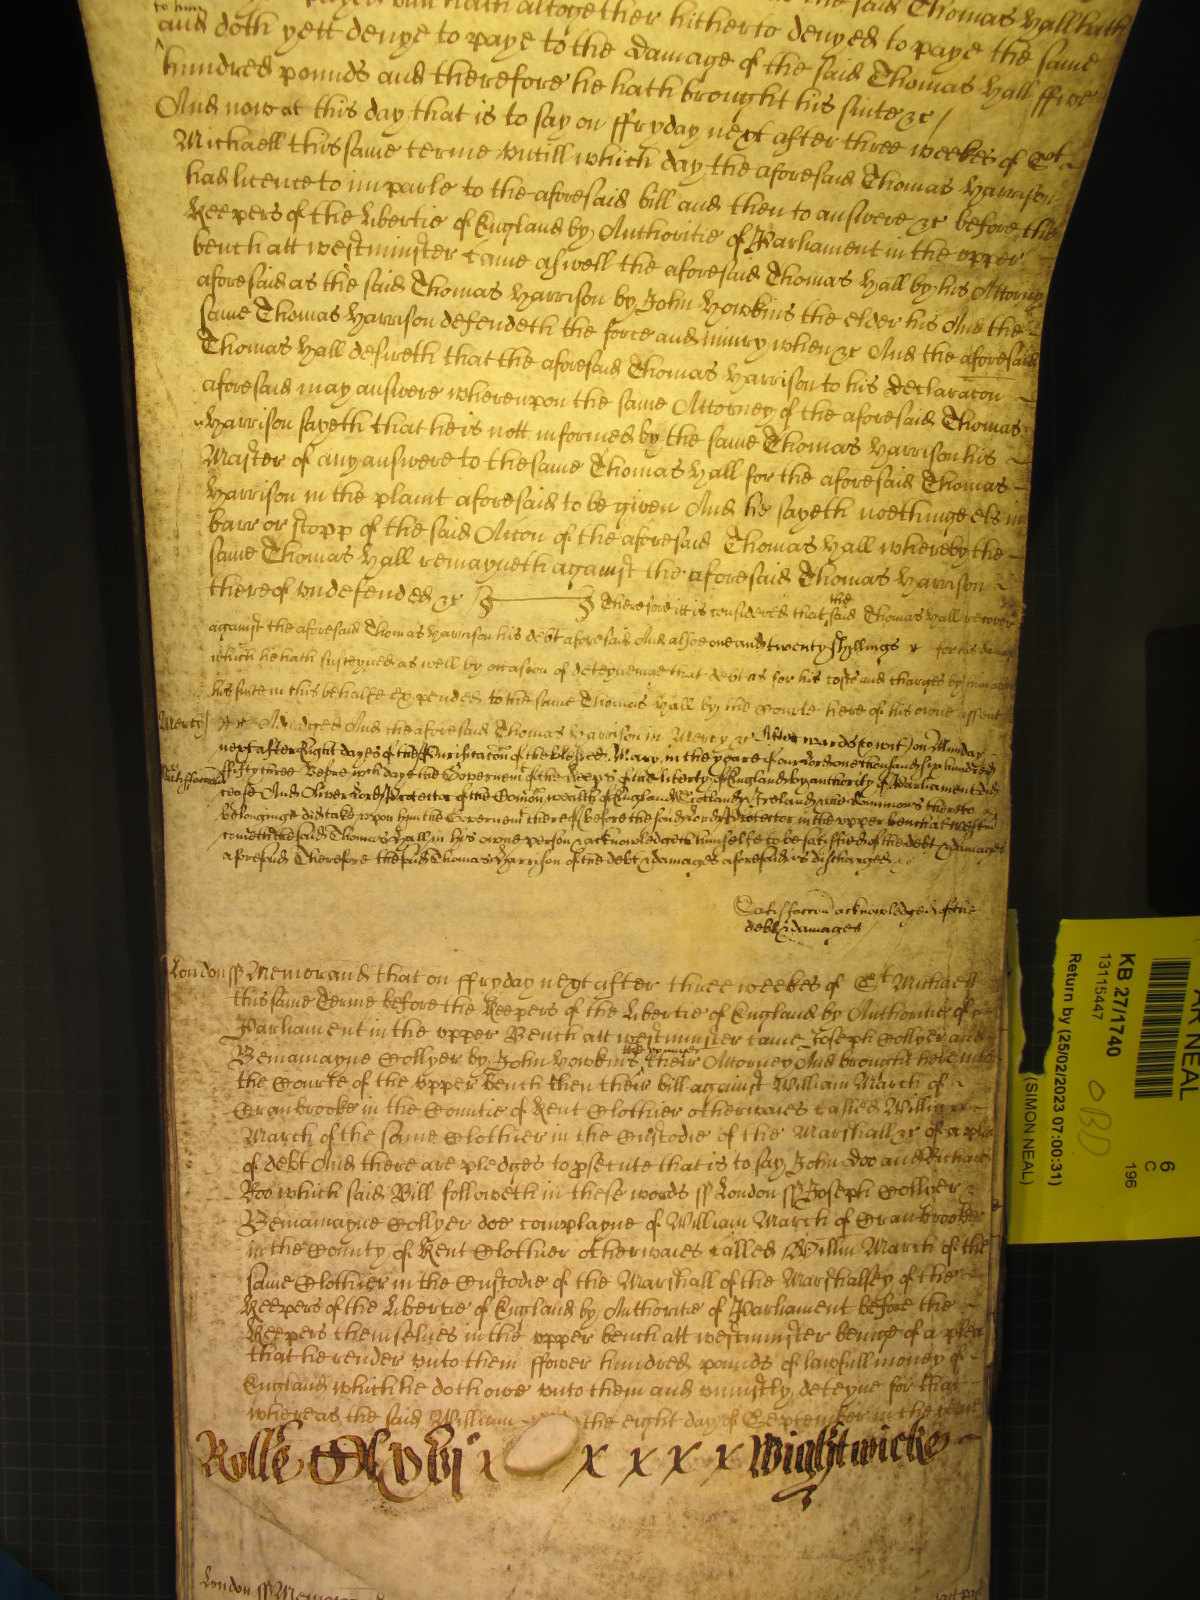 to him
said Thomas Hall hath
hath altogether hitherto denyed to paye the same
and doth yett denye to paye to the damage of the said Thomas Hall ffive
hundred pounds and therefore he hath brought his suite &c /
And now at this day that is to say on ffryday next after three weekes of St
Michaell this same terme untill which day the aforesaid Thomas Harrison
had licence to imparle to the aforesaid bill and then to answere &c before the
Keepers of the Libertie of England by Authoritie of Parliament in the upper
bench att westminster came aswell the aforesaid Thomas Hall by his Attorny
aforesaid as the said Thomas Harrison by John Howkins the elder his And the
same Thomas Harrison defendeth the force and iniury when &c And the aforesaid
Thomas Hall desireth that the aforesaid Thomas Harrison to his declaracon
aforesaid may answere whereupon the same Attorney of the aforesaid Thomas
Harrison sayeth that he is nott informed by the same Thomas Harrison his
Master of any answere to the same Thomas Hall for the aforesaid Thomas
Harrison in the plaint aforesaid to be given And he sayeth noethinge els in
barr or stopp of the said Accon of the aforesaid Thomas Hall whereby the
same Thomas Hall remayneth against the aforesaid Thomas Harrison
thereof undefended &c Therefore itt is considered that the said Thomas Hall recover
against the aforesaid Thomas Harrison his debt aforesaid And alsoe one and twenty shillings & for his damages
which he hath susteyned as well by occasion of deteyneing that debt as for his costs and charges by
his suite in this behalfe expended to the same Thomas Hall by the Courte here of his owne assent
Mercy &c Adiudged And the aforesaid Thomas Harrison in Mercy &c Afterwards to wit on Munday
next after Eight dayes of the Purificacon of the blessed Mary in the yeare of our Lord one thousand six hundred
Satisfaccon
fifty three Before wch day the Governemt of the Keeps of the liberty of England by authority of Parliament did
cease And Oliver Lord Protector of the Comon wealth of England Scotland & Ireland & the dominions thereto
belonginge did take upon him the Governemt thereof before the said Lord Protector in the upper bench at Westmr
cometh the said Thomas Hall in his owne person & acknowledgeth himselfe to be satisfied of the debt & damages
aforesaid Therefore the said Thomas Harrison of the debt & damages aforesaid is discharged
Satisfaccon acknowledged of the
debt & damages
London ss Memorand that on ffryday next after three weekes of St Michaell
this same Terme before the Keepers of the Libertie of England by Authoritie of
Parliament in the upper Bench att westminster came Joseph Collyer and
Beniamayne Collyer by John Howkins the younger their Attorney And brought here into
the Courte of the upper bench then their bill against William March of
Cranbrooke in the Countie of Kent Clothier otherwaies called William
March of the same Clothier in the Custodie of the Marshall &c of a plea
of debt And there are pledges to psecute that is to say John Doo and Richard
Roo which said Bill followeth in these words ss London ss Joseph Collyer &
Beniamayne Collyer doe complayne of William March of Cranbrooke
in the County of Kent Clothier otherwaies called Willm March of the
same Clothier in the Custodie of the Marshall of the Marshalsey of the
Keepers of the Libertie of England by Authoritie of Parliament before the
Keepers themselues in the upper bench att westminster beinge of a plea
that he render unto them ffower hundred pounds of lawfull money of
England which he doth owe unto them and uniustly deteyne for that
whereas the said William the eight day of September in the yeare
Rolle x x x x x Wightwicke
London ss Memorand
AR NEAL
KB 27/1740
13115447
Return by (25/02/2023 07:00:31)
(SIMON NEAL)
6
C
196
OBD